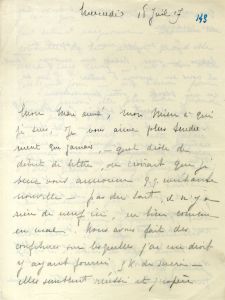 Mercredi 18 Juil 17
148
Mon Mari aimé, mon Mien à qui
je suis, Je vous aime plus tendre
ment que jamais, — quel drôle de
début de lettre, on croirait que j'ai
à vous annoncer q.q.
nouvelle — pas du tout, il n'y a
rien de neuf ici, en bien comme
en mal. Nous avons fait des
confitures sur lesquelles j'ai un droit
y ayant fourni K. de sucre —
elles semblent réussi et j'espère